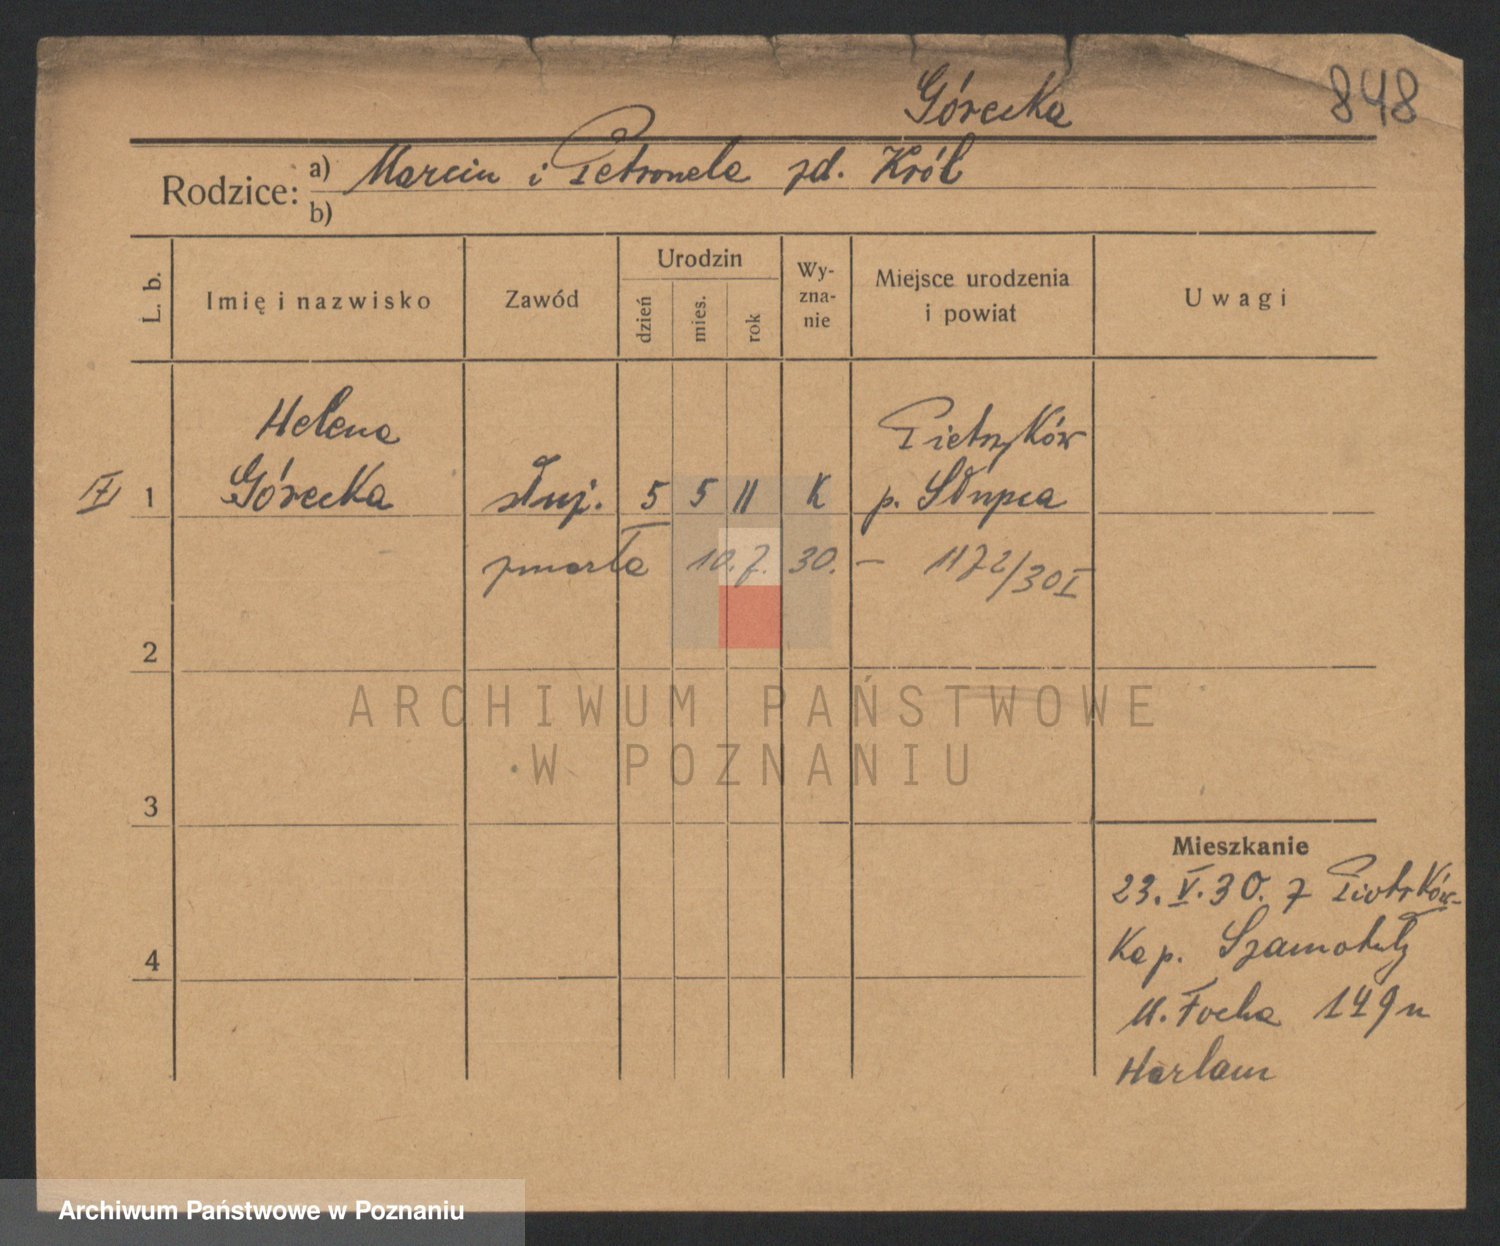 Górecka
848
Rodzice: a) Marcin i Petronela zd. Król
b)
L. b.
Imię i nazwisko
Zawód
Urodzin
dzień
mies.
rok
Wy-
zna-
nie
Miejsce urodzenia
i powiat
Uwagi
Helena
Górecka
1
służ.
5
5
11
K
Pietrzyków
p. Słupca
zmarła 10. 7. 30. – 1172/30 I
2
3
4
ARCHIWUM PAŃSTWOWE
W POZNANIU
Mieszkanie
23. V. 30. z Piotrków-
ka p. Szamotuły
M. Focha 149 u
Harlam
Archiwum Państwowe w Poznaniu